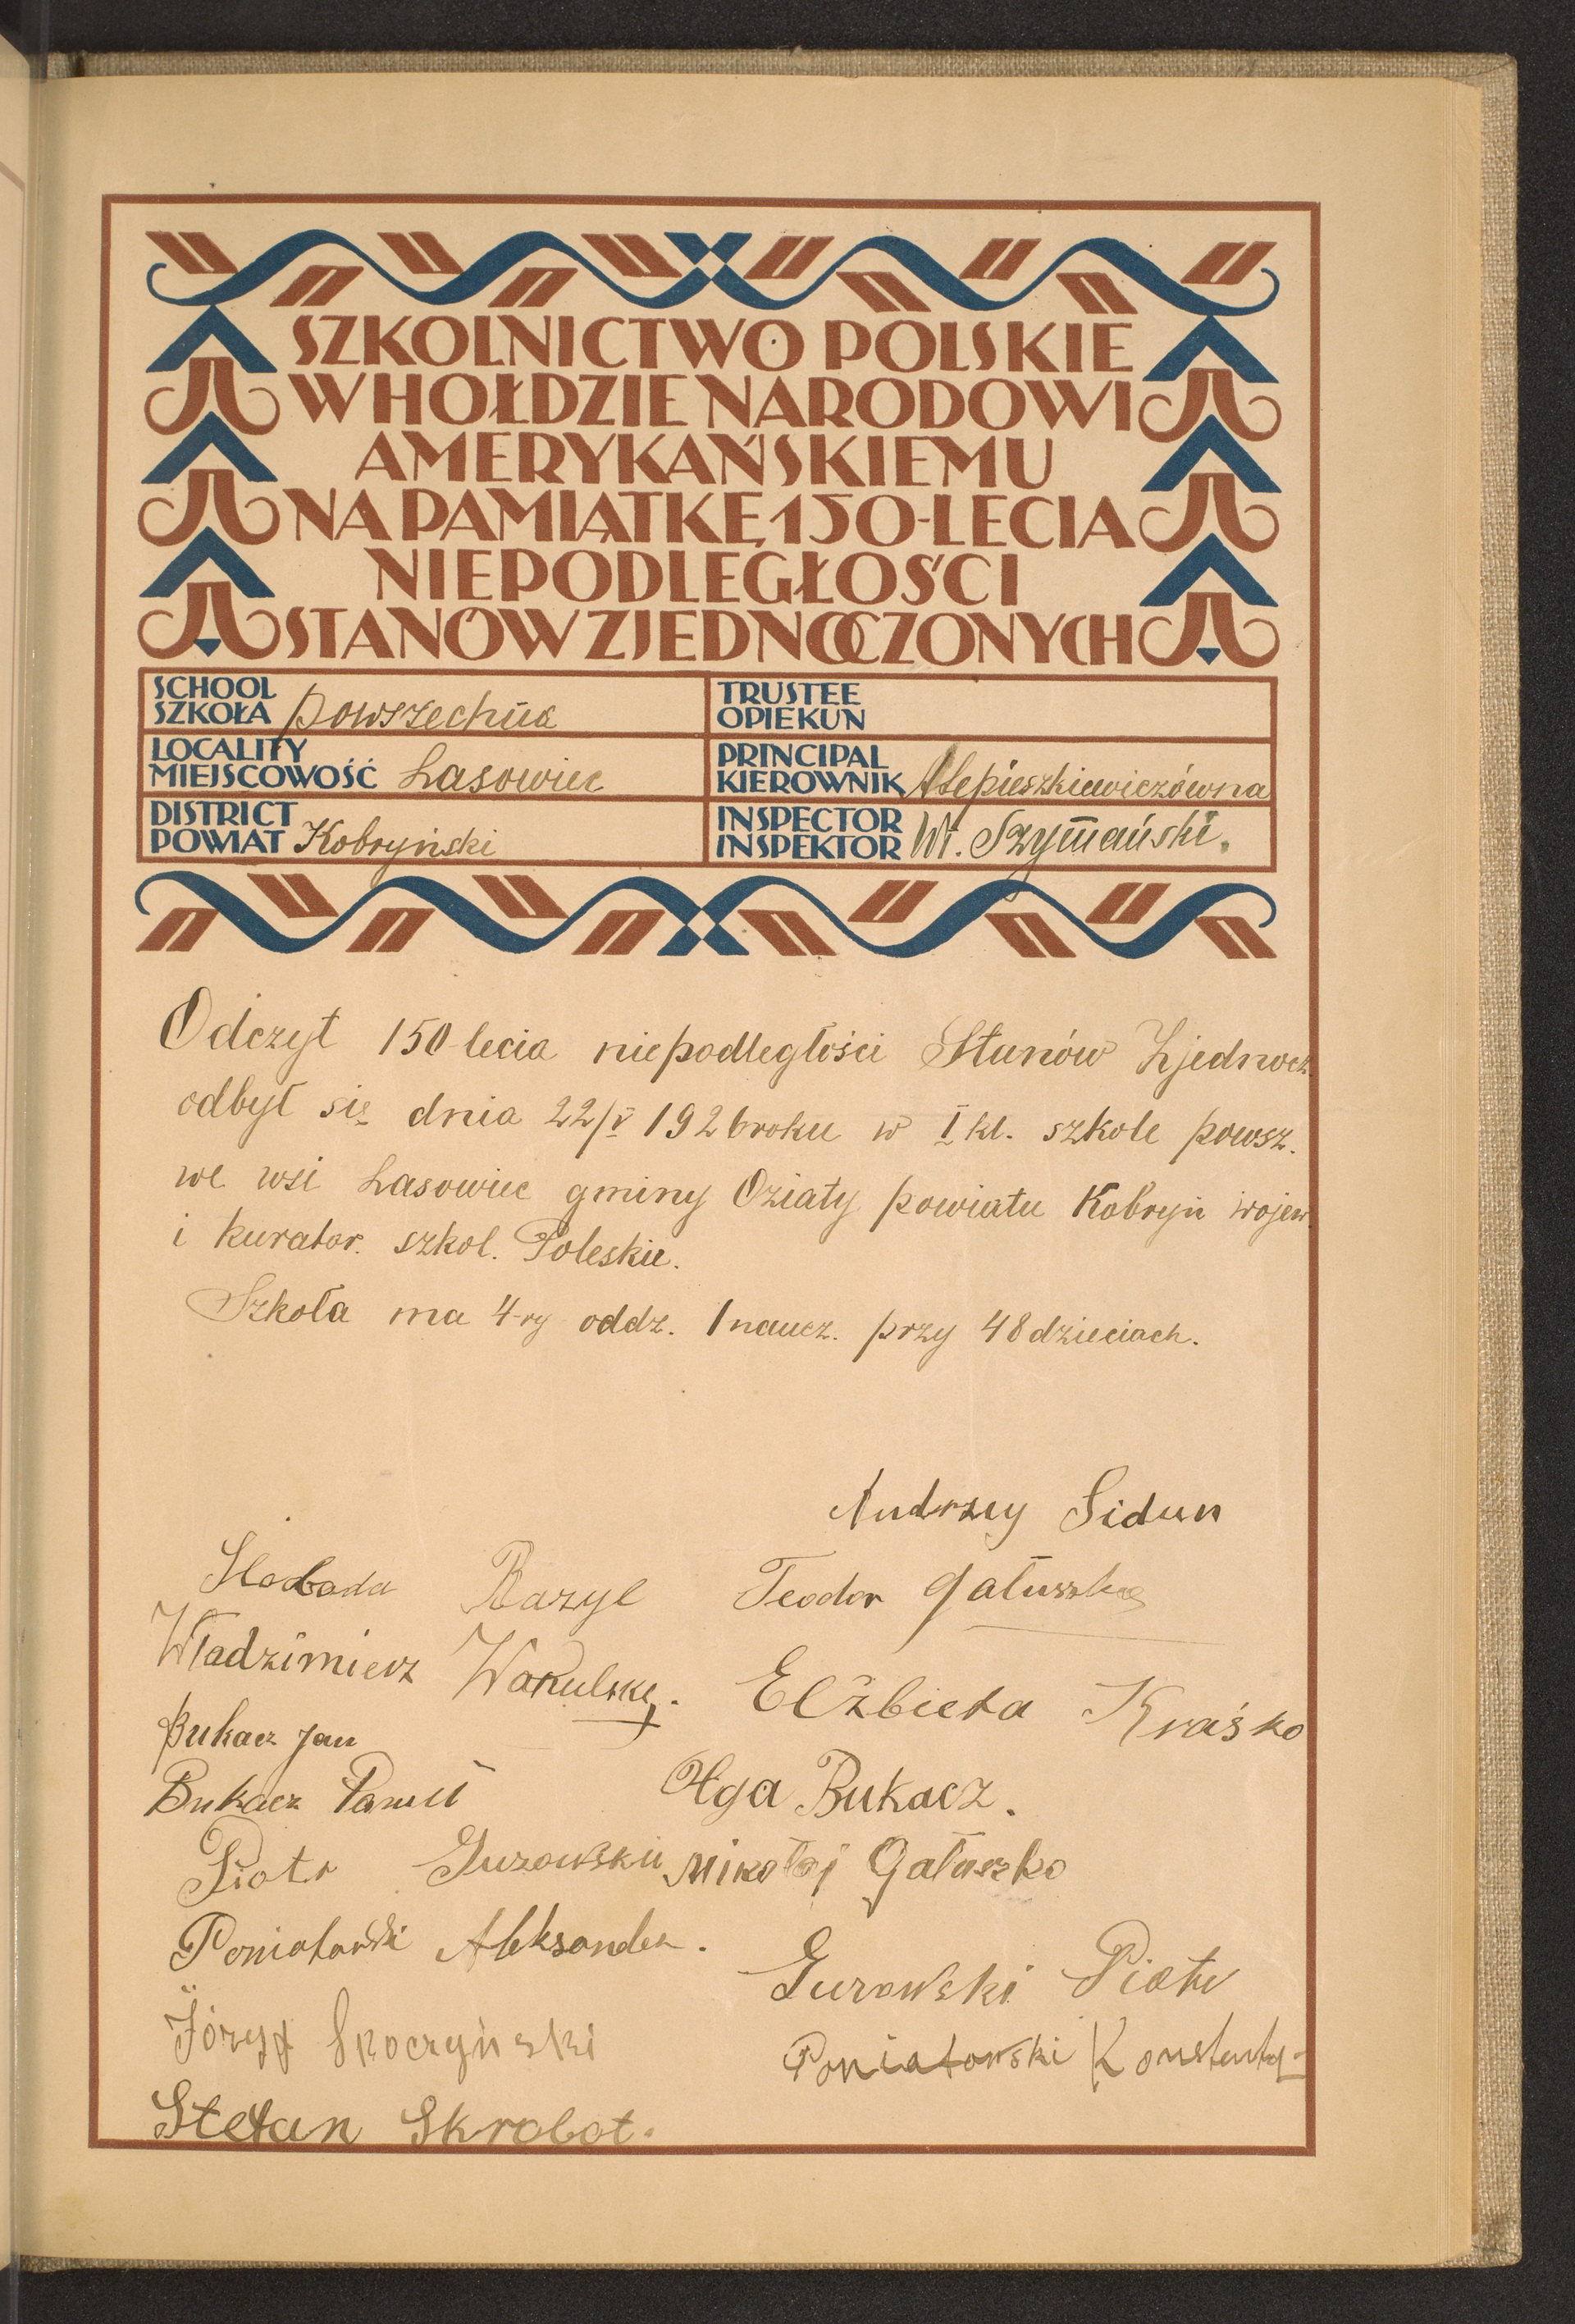 SZKOLNICTWO POLSKIE
W HOŁDZIE NARODOWI
AMERYKAŃSKIEMU
NA PAMIĄTKĘ 150-LECIA
NIEPODLEGŁOŚCI
STANÓW ZJEDNOCZONYCH
SCHOOL
SZKOŁA powszechna
TRUSTEE
OPIEKUN
LOCALITY
MIEJSCOWOŚĆ Lasowiec
PRINCIPAL
KIEROWNIK
DISTRICT
POWIAT Kobryński
INSPECTOR
INSPEKTOR Wł. Szymański.
Odczyt 150-lecia niepodległości Stanów Zjednocz.
odbył się dnia 22/V 1926 roku w I kl. szkole powsz.
we wsi Lasowiec gminy Oziaty powiatu Kobryń wojew.
i kurator. szkol. Poleskie.
Szkoła ma 4-ry oddz. 1 naucz. przy 48 dzieciach.
Andrzey Sidun
Słoboda Bazyl
Teodor Gałuszko
Władzimierz
Elżbieta Kraśko
Bukacz Jan
Bukacz Paweł
Olga Bukacz.
Piotr Gurowskii
Mikołaj Gałuszko
Poniatowski Aleksander.
Gurowski Piotr
Józef Skoczyński
Poniatowski Konstanty
Stefan Skrobot.